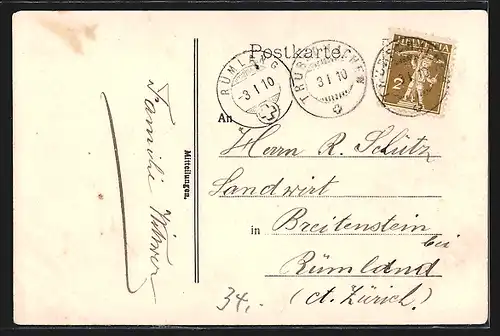 Postkarte.
RÜMLANG
-3 I 10
TRUB
CHEN
3 I 10
HELVETIA
2
An
Herrn R. Schütz
Landwirt
in Breitenstein
bei
Rümland
(Ct. Zürich.)
34.-
Mitteilungen.
Familie